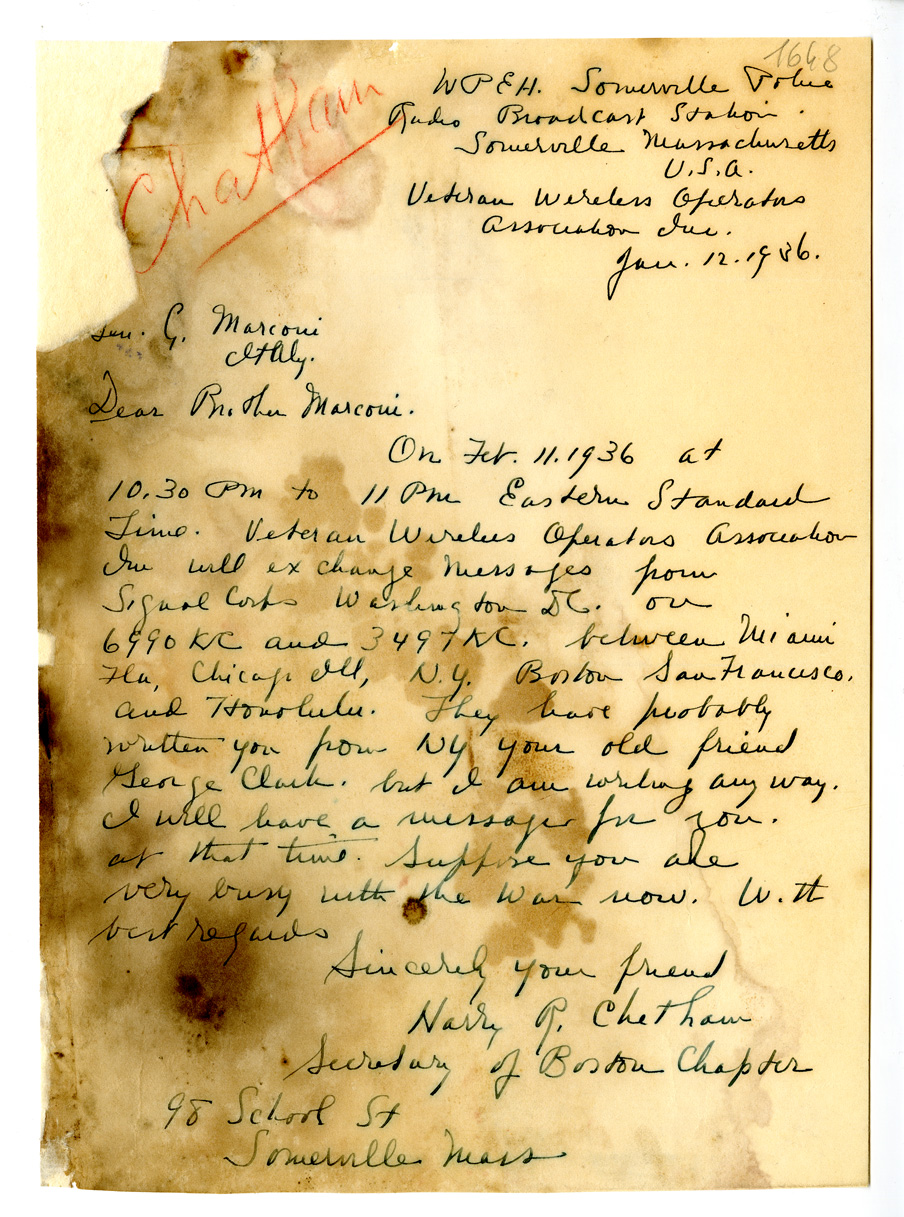 1648
Chatham
WPEH. Somerville Police
Radio Broadcast Station.
Somerville Massachusetts
U.S.A.
Veteran Wireless Operators
Association Inc.
Jan. 12. 1936.
Sen. G. Marconi
Itally.
Dear Brother Marconi.
On Feb. 11. 1936 at
10.30 PM to 11 PM Eastern Standard
Time. Veteran Wireless Operators Association
Inc will exchange Messages from
Signal Corps Washington DC. on
6990 KC and 3497 KC. between Miami
Fla, Chicago Ill, N.Y. Boston San Francisco.
and Honolulu. They have probably
written you from NY your old friend
George Clark. but I am writing any way.
I will have a message for you.
at that time. Suppose you are
very busy with the War now. With
best regards
Sincerely your friend
Harry R. Chetham
Secretary of Boston Chapter
98 School St
Somerville Mass